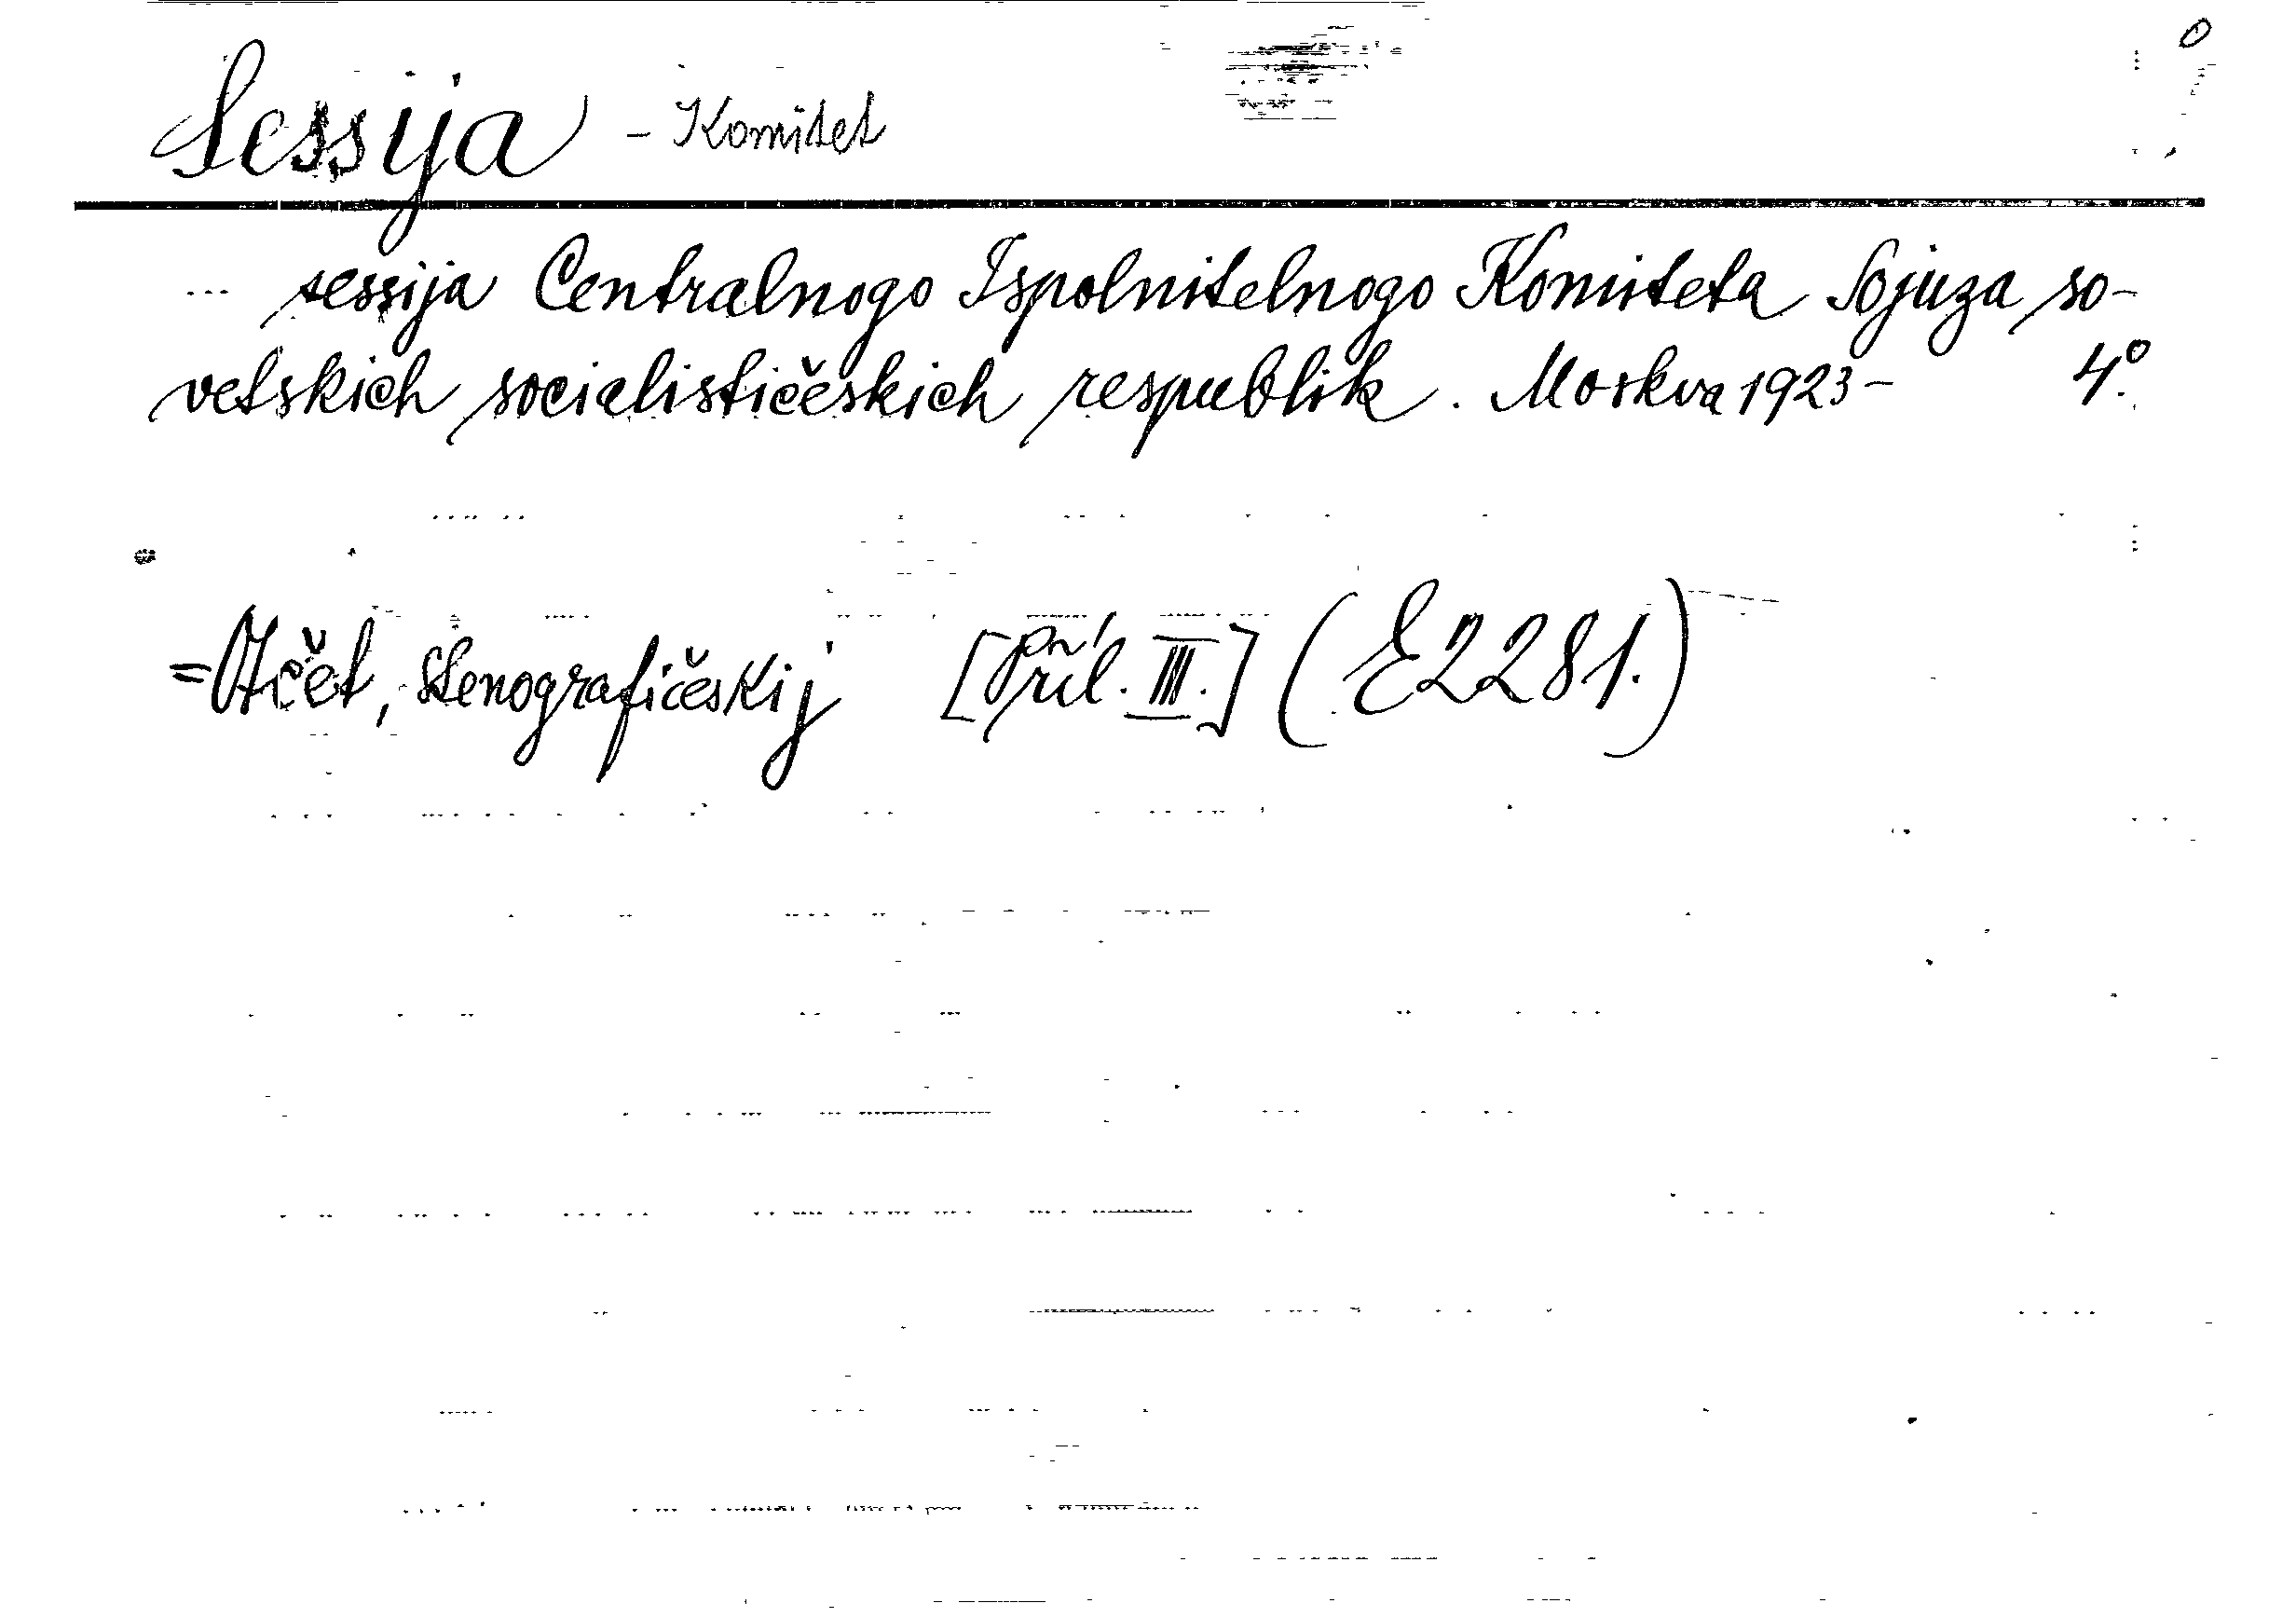 Sessija - Komitet
... sessija Centralnogo Ispolnitelnogo Komiteta Sojuza so-
vetskich socialističeskich respublik. Moskva 1923- 4°.
=Otčet, stenografičeskij [Pril. III.] (E2281.)